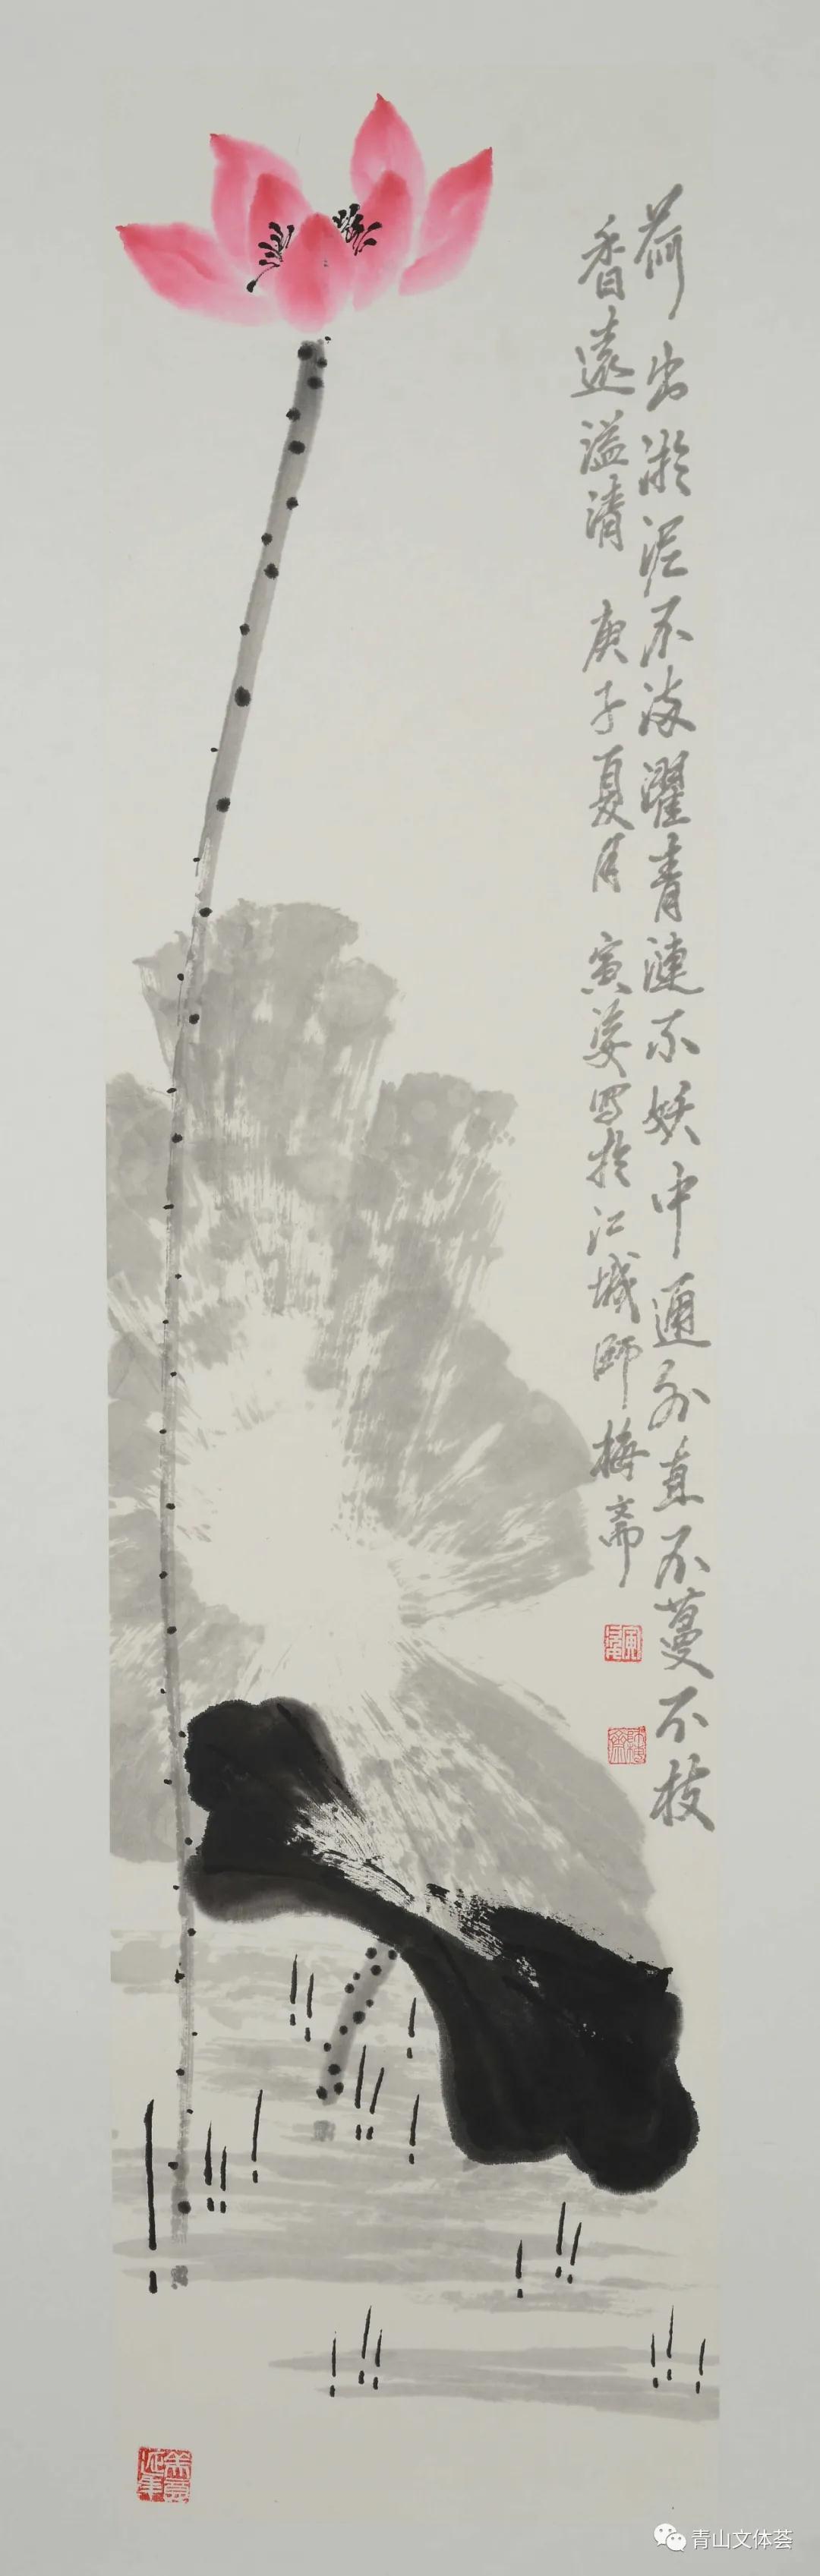 荷出淤泥不染濯青漣不妖中通外直不蔓不枝
香遠溢清 庚子夏月 寅姜写於江城師梅斋
青山文体荟